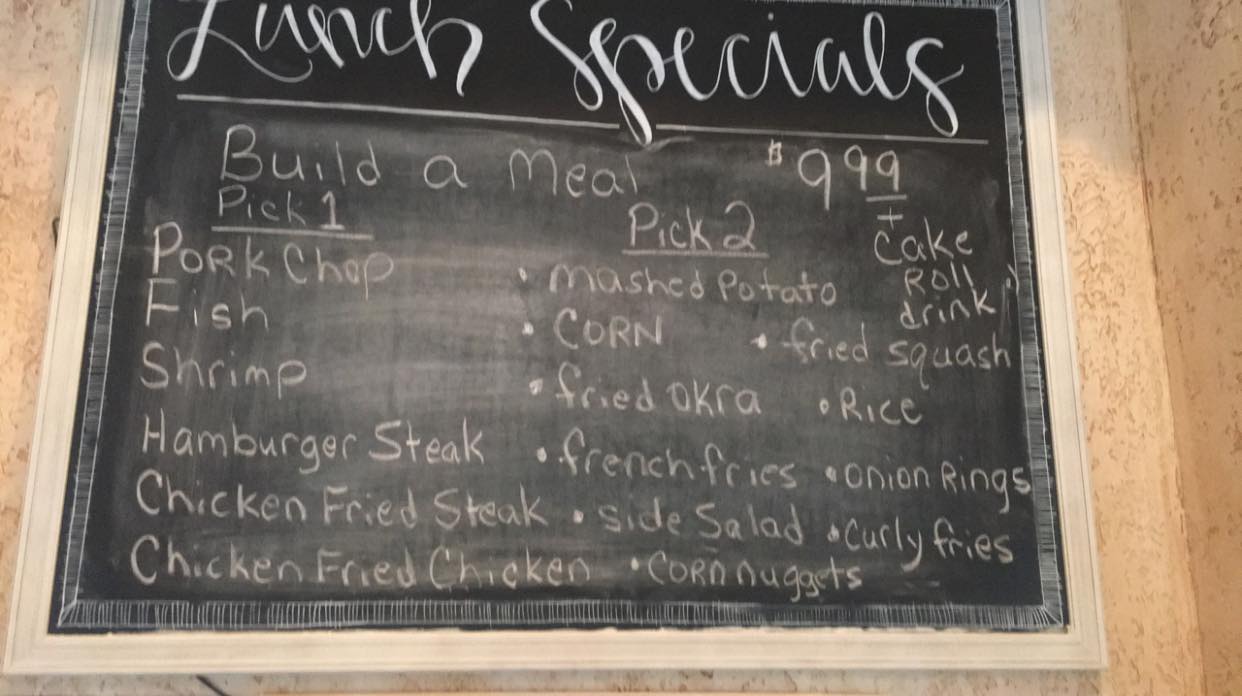 Lunch Specials
Build a Meal $999
Pick 1
Pork Chop
Fish
Shrimp
Hamburger Steak
Chicken Fried Steak
Chicken Fried Chicken
Pick 2
• Mashed Potato
• CORN • fried squash
• fried okra • Rice
• french fries • onion Rings
• side Salad • Curly fries
• CORN nuggets
+
Cake
Roll
drink